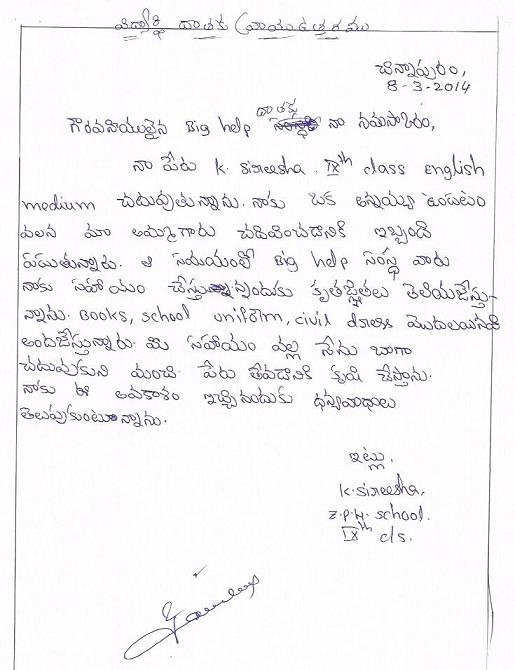 విద్యార్థి దాతకు వ్రాయు ఉత్తరము
చిన్నాపురం,
8-3-2014
గౌరవనీయులైన Big help దాతకు నా నమస్కారం,
నా పేరు K. Sireesha. IXth class English
medium చదువుతున్నాను. నాకు ఒక అన్నయ్య ఉండటం
వలన మా అమ్మగారు చదివించడానికి ఇబ్బంది
పడుతున్నారు. ఆ సమయంలో Big help సంస్థ వారు
నాకు సహాయం చేస్తున్నందుకు కృతజ్ఞతలు తెలియజేస్తు-
న్నాను. Books, school uniform, civil dress మొదలయినవి
అందజేస్తున్నారు. మీ సహాయం వల్ల నేను బాగా
చదువుకుని మంచి పేరు తేవడానికి కృషి చేస్తాను.
నాకు ఈ అవకాశం ఇచ్చినందుకు ధన్యవాదాలు
తెలుపుకుంటున్నాను.
ఇట్లు,
K. Sireesha,
Z.P.H. School.
IXth cls.